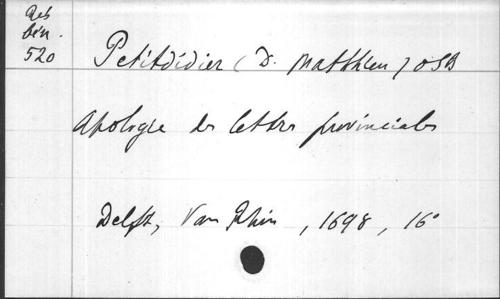 Res
bin.
520
Petitdidier (D. Matthieu) OSB
Apologie des lettres provinciales
Delft, Van Rhin, 1698, 16°